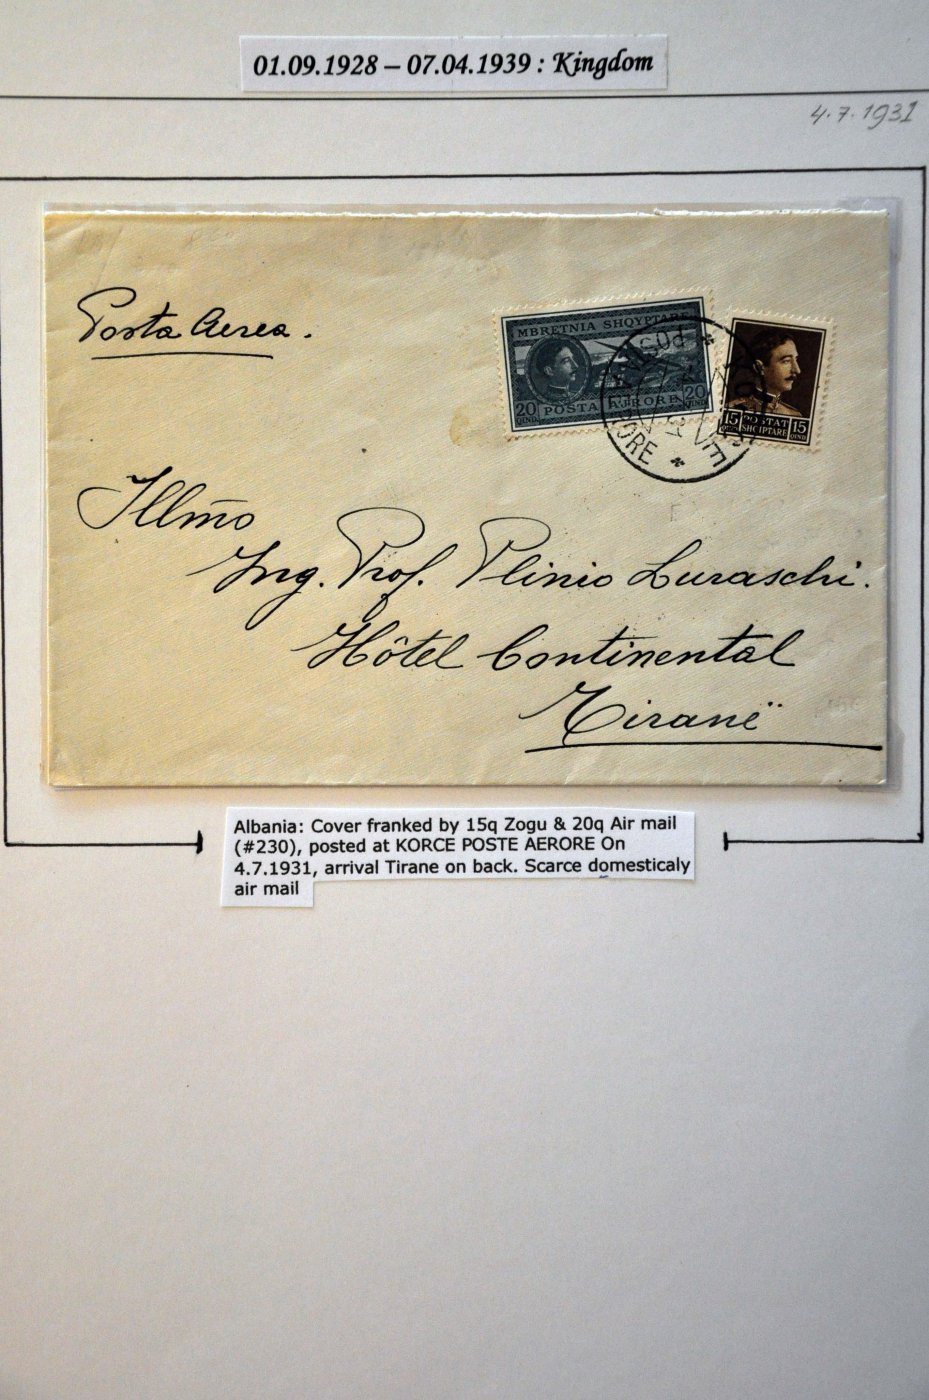 01.09.1928 – 07.04.1939 : Kingdom
4.7.1931
Posta Aerea.
MBRETNIA SHQYPTARE
20 QIND. POSTA AERORE 20 QIND.
15 QIND. POSTAT SHCIPTARE 15 QIND.
POSTA
Illmo
Ing. Prof. Plinio Luraschi.
Hôtel Continental
Tiranë
Albania: Cover franked by 15q Zogu & 20q Air mail
(#230), posted at KORCE POSTE AERORE On
4.7.1931, arrival Tirane on back. Scarce domesticaly
air mail